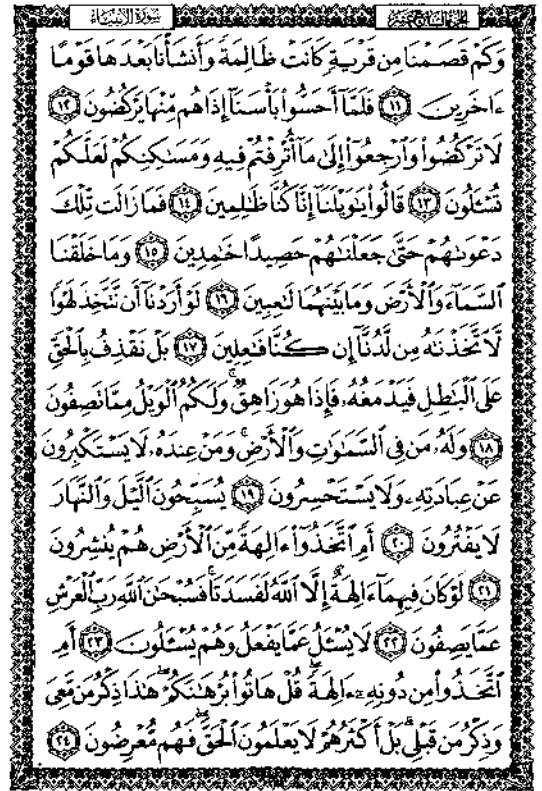 سورة الأنبياء
الجزء السابع عشر
وَكَمْ قَصَمْنَا مِن قَرْيَةٍ كَانَتْ ظَالِمَةً وَأَنشَأْنَا بَعْدَهَا قَوْمًا
ءَاخَرِينَ ﴿١١﴾ فَلَمَّآ أَحَسُّوا۟ بَأْسَنَآ إِذَا هُم مِّنْهَا يَرْكُضُونَ ﴿١٢﴾
لَا تَرْكُضُوا۟ وَٱرْجِعُوٓا۟ إِلَىٰ مَآ أُتْرِفْتُمْ فِيهِ وَمَسَـٰكِنِكُمْ لَعَلَّكُمْ
تُسْـَٔلُونَ ﴿١٣﴾ قَالُوا۟ يَـٰوَيْلَنَآ إِنَّا كُنَّا ظَـٰلِمِينَ ﴿١٤﴾ فَمَا زَالَت تِّلْكَ
دَعْوَىٰهُمْ حَتَّىٰ جَعَلْنَـٰهُمْ حَصِيدًا خَـٰمِدِينَ ﴿١٥﴾ وَمَا خَلَقْنَا
ٱلسَّمَآءَ وَٱلْأَرْضَ وَمَا بَيْنَهُمَا لَـٰعِبِينَ ﴿١٦﴾ لَوْ أَرَدْنَآ أَن نَّتَّخِذَ لَهْوًا
لَّٱتَّخَذْنَـٰهُ مِن لَّدُنَّآ إِن كُنَّا فَـٰعِلِينَ ﴿١٧﴾ بَلْ نَقْذِفُ بِٱلْحَقِّ
عَلَى ٱلْبَـٰطِلِ فَيَدْمَغُهُۥ فَإِذَا هُوَ زَاهِقٌ ۚ وَلَكُمُ ٱلْوَيْلُ مِمَّا تَصِفُونَ
﴿١٨﴾ وَلَهُۥ مَن فِى ٱلسَّمَـٰوَٰتِ وَٱلْأَرْضِ ۚ وَمَنْ عِندَهُۥ لَا يَسْتَكْبِرُونَ
عَنْ عِبَادَتِهِۦ وَلَا يَسْتَحْسِرُونَ ﴿١٩﴾ يُسَبِّحُونَ ٱلَّيْلَ وَٱلنَّهَارَ
لَا يَفْتُرُونَ ﴿٢٠﴾ أَمِ ٱتَّخَذُوٓا۟ ءَالِهَةً مِّنَ ٱلْأَرْضِ هُمْ يُنشِرُونَ
﴿٢١﴾ لَوْ كَانَ فِيهِمَآ ءَالِهَةٌ إِلَّا ٱللَّهُ لَفَسَدَتَا ۚ فَسُبْحَـٰنَ ٱللَّهِ رَبِّ ٱلْعَرْشِ
عَمَّا يَصِفُونَ ﴿٢٢﴾ لَا يُسْـَٔلُ عَمَّا يَفْعَلُ وَهُمْ يُسْـَٔلُونَ ﴿٢٣﴾ أَمِ
ٱتَّخَذُوا۟ مِن دُونِهِۦٓ ءَالِهَةً ۖ قُلْ هَاتُوا۟ بُرْهَـٰنَكُمْ ۖ هَـٰذَا ذِكْرُ مَن مَّعِىَ
وَذِكْرُ مَن قَبْلِى ۗ بَلْ أَكْثَرُهُمْ لَا يَعْلَمُونَ ٱلْحَقَّ ۖ فَهُم مُّعْرِضُونَ ﴿٢٤﴾